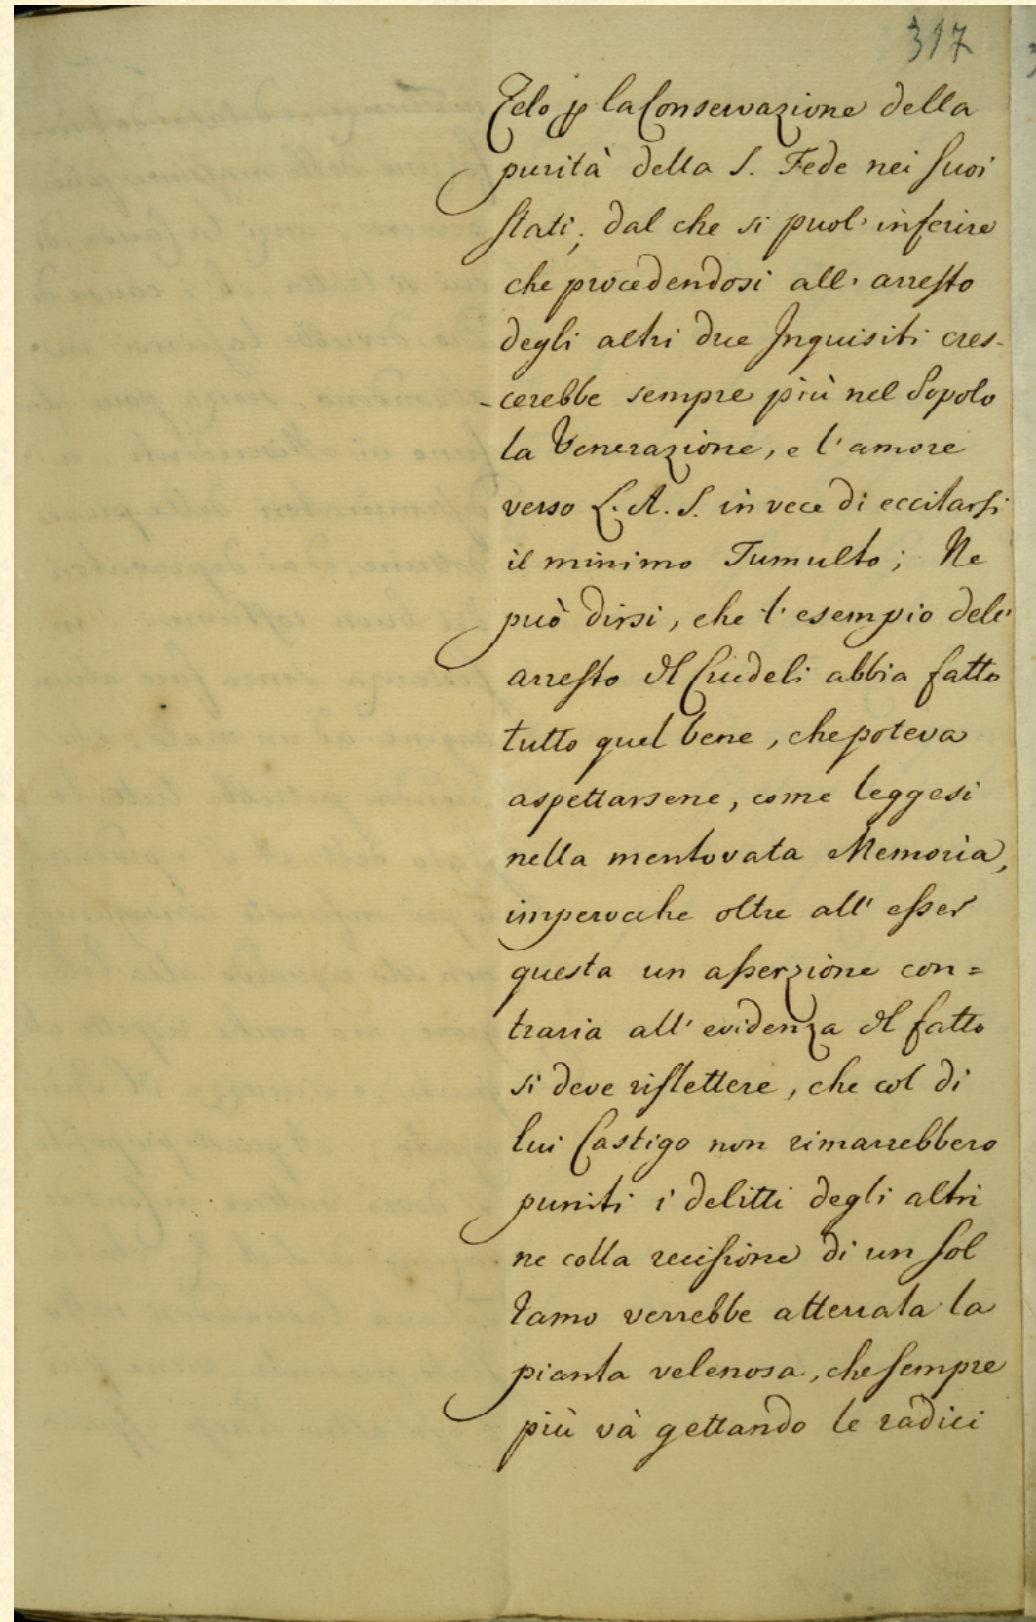 317
Zelo p la Conservazione della
purità della S. Fede nei suoi
stati; dal che si puol' inferire
che procedendosi all' arresto
degli altri due Inquisiti cres-
-cerebbe sempre più nel Popolo
la Venerazione, e l' amore
verso S. A. S. in vece di eccitarsi
il minimo Tumulto; Ne
può dirsi, che l' esempio dell'
arresto del Crudeli abbia fatto
tutto quel bene, che poteva
aspettarsene, come leggesi
nella mentovata Memoria,
imperocche oltre all' esser
questa un asserzione con=
traria all' evidenza del fatto
si deve riflettere, che col di
lui Castigo non rimarrebbero
puniti i delitti degli altri
ne colla recisione di un sol
Ramo verrebbe atterrata la
pianta velenosa, che sempre
più và gettando le radici